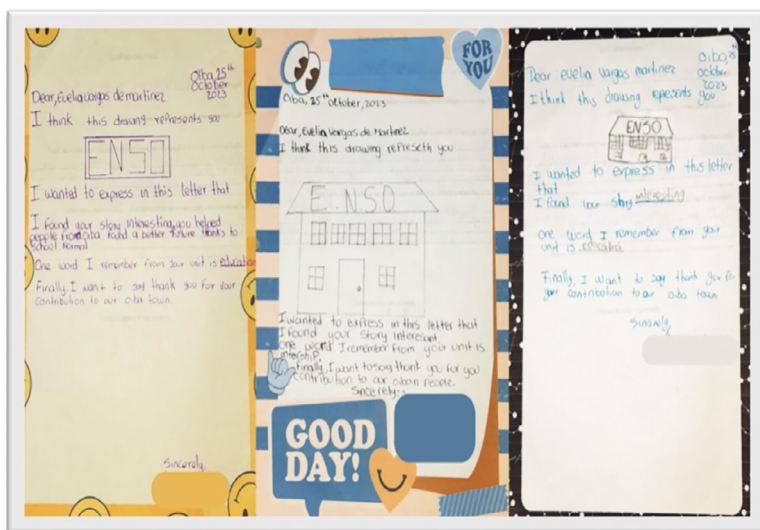 Oiba, 25th
October
2023
Dear, Evelia vargas de martinez
I think this drawing represents you
ENSO
I wanted to express in this letter that
I found your story interesting, you helped
people from oiba found a better future thanks to
school normal
One word I remember from your unit is education
Finally, I want to say thank you for your
contribution to our oiba town.
Sincerely,
FOR
YOU
Oiba, 25th october, 2023
Dear, Evelia Vargas de Martinez
I think this drawing represeth you
E.N.S.O
I wanted to express in this letter that
I found your story interesant,
one word I remember from your unit is
intership.
Finally, I want to say thank you for you
contribution to our oiban people.
Sincerely:
GOOD
DAY!
Oiba, 25th
october
2023
Dear evelia vargas martinez
I think this drawing represents you
ENSO
I wanted to express in this letter
that
I found your story interesting
one word I remember from your
unit is
Finally, I want to say thank you for
your contribution to our oiba town
Sincerely,